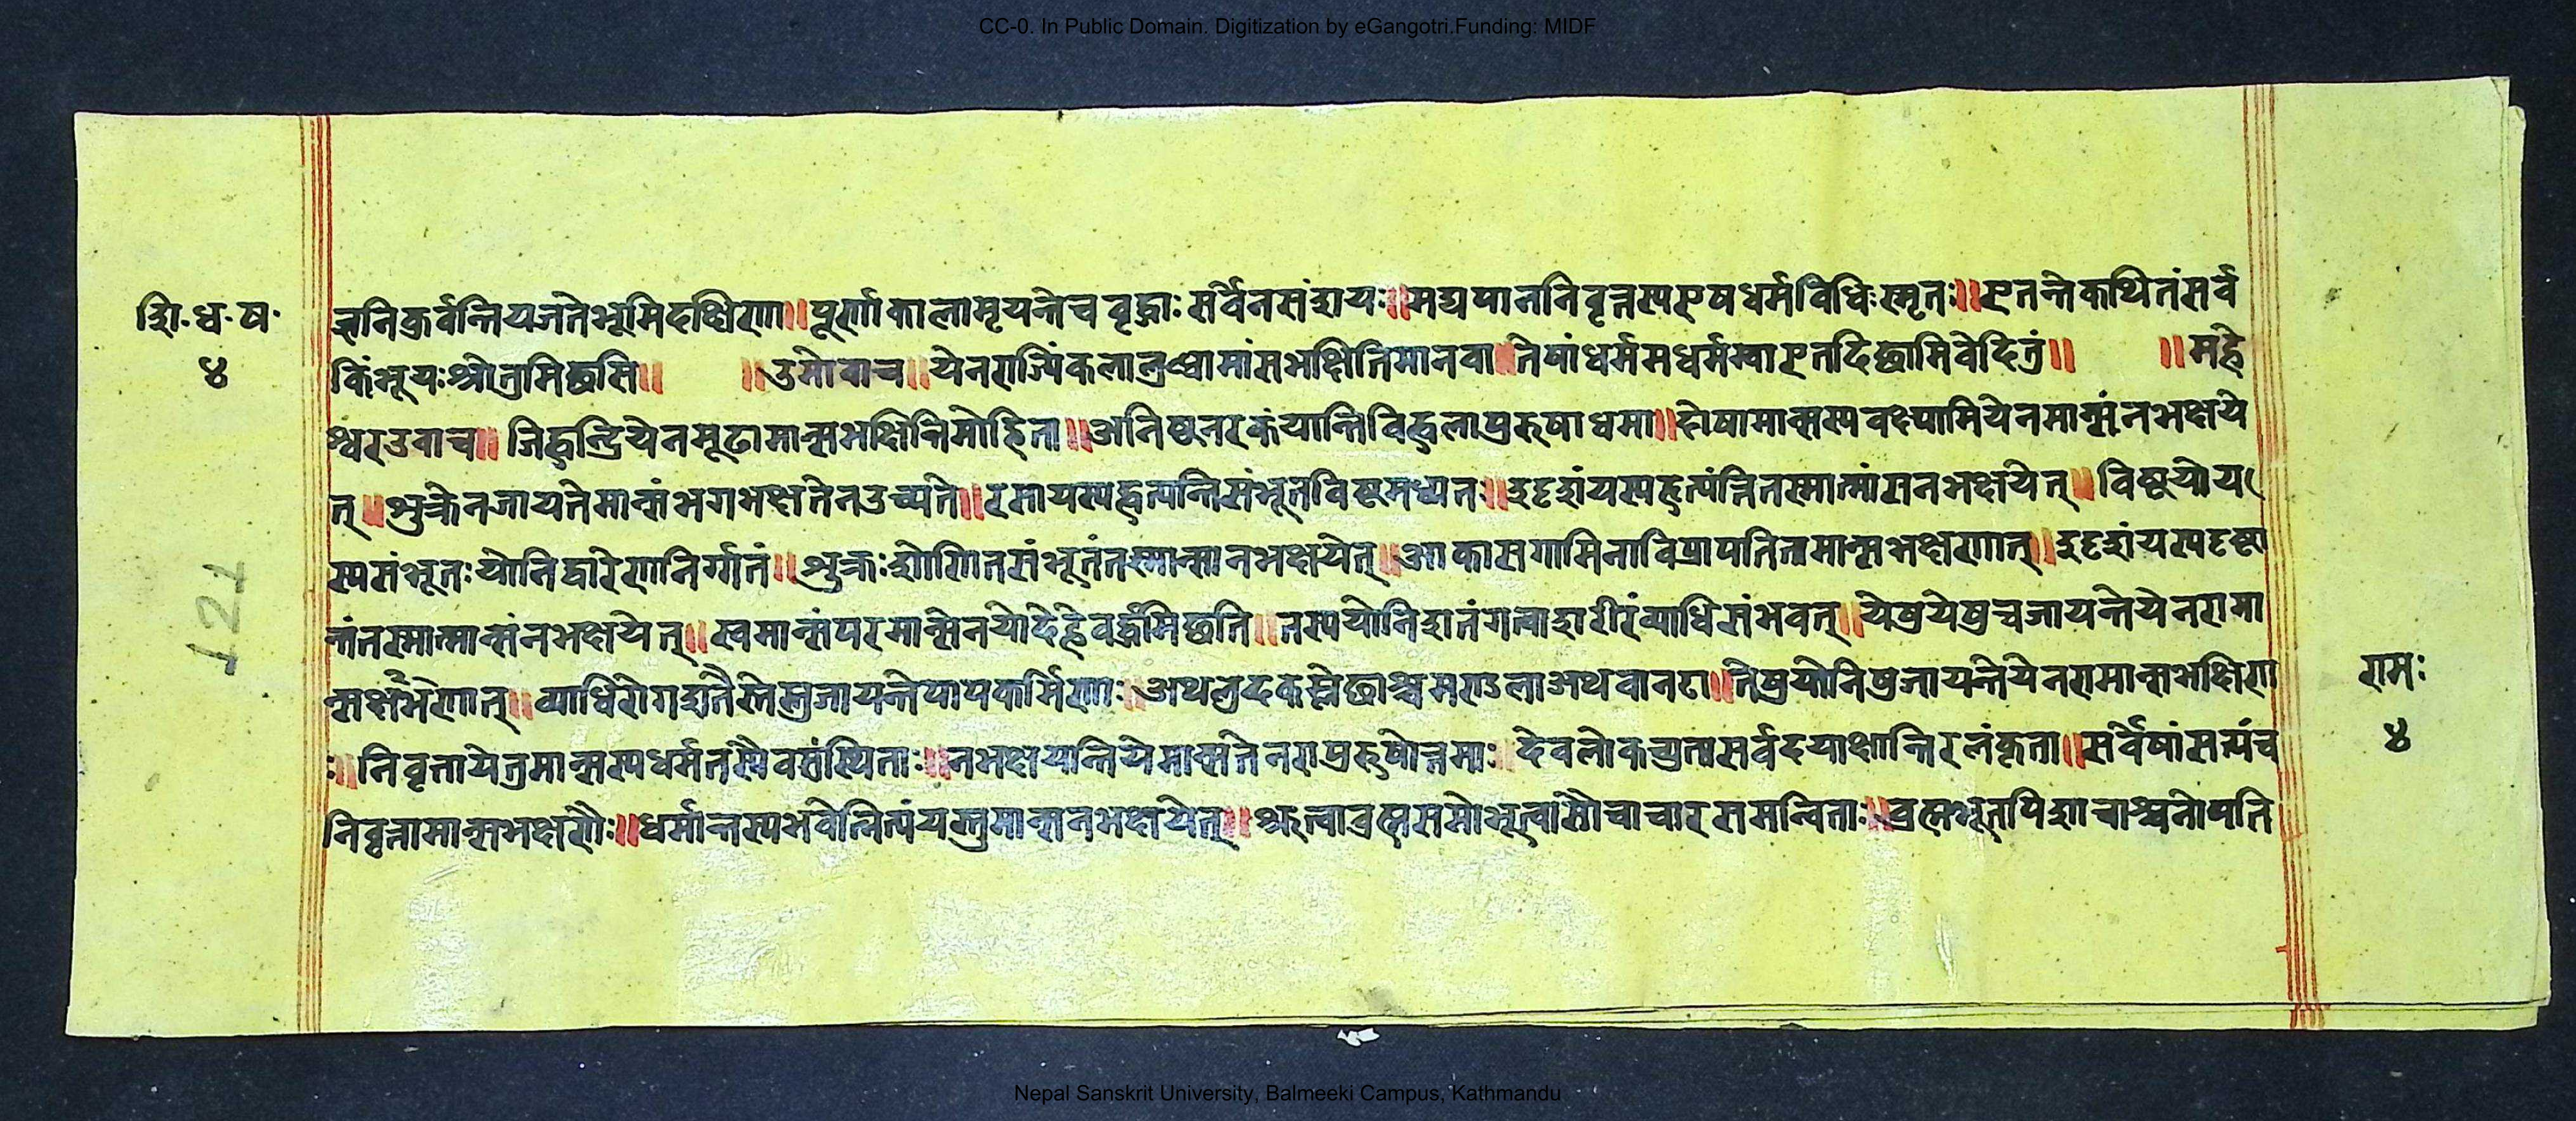 CC-0. In Public Domain. Digitization by eGangotri.Funding: MIDF
शि.ध.ष.
४
ज्ञनिकुर्वन्तियजतेभूमिदक्षिणा॥पूर्णाकालामृयन्तेचवृद्धाःसर्वेनसंशयः॥मद्यपाननिवृत्तस्यएषधर्मविधिःस्मृतः॥एतत्तेकथितंसर्वं
किंभूयःश्रोतुमिछसि॥ ॥उमोवाच॥येनरा मांसभक्षितिमानवा॥तेषांधर्ममधर्मम्वाएतदिछामिवेदितुं॥ ॥महे
श्वरउवाच॥जिह्वन्द्रियेनमूढामान्सभक्षिन्तिमोहिता॥अनिष्ठनरकंयान्तिविह्वलापुरुषाधमा॥दोषामान्सस्यवक्ष्यामियेनमान्संनभक्षये
त्॥शुक्रेनजायतेमान्संभगभक्षतेनउच्यते॥ विष्टमध्यत॥ नभक्षयेत्॥
स्यसंभूतःयोनिद्वारेणनिर्गतं॥शुक्रःशोणितसंभूतंतस्मान्मान्सनभक्षयेत्॥आकासगामिनोविप्रापतितामान्सभक्षणात्॥
तस्मान्मान्संनभक्षयेत्॥स्वमान्संपरमान्सेनयोदेहेवर्द्धमिछति॥तस्ययोनिशतंगत्वाशरीरंव्याधिसंभवत्॥येषुयेषुचजायन्तेयेनरामा
न्सभक्षणात्॥व्याधिरोगशतै जायन्तेपापकर्मिणः॥ अथवानटा॥तेषुयोनिषुजायन्तेयेनरामान्सभक्षिणा
ः॥निवृत्तायेतुमान्सस्यधर्मतस्यैवसंस्थिताः॥नभक्षयान्तियेमान्सतेनरापुरुषोत्तमाः॥देवलोकच्युतासर्वदयाक्षान्तिरलंकृता॥सर्वेषांसत्यंच
निवृत्तामान्सभक्षणैः॥धर्मान्तस्यभवेन्नित्यंयस्तुमान्सनभक्षयेत्॥श्रुत्वाब्रह्मसमोभूत्वासौचाचारसमन्विताः॥ब्रह्मभूतपिशाचाश्चनोपति
रामः
४
121
Nepal Sanskrit University, Balmeeki Campus, Kathmandu